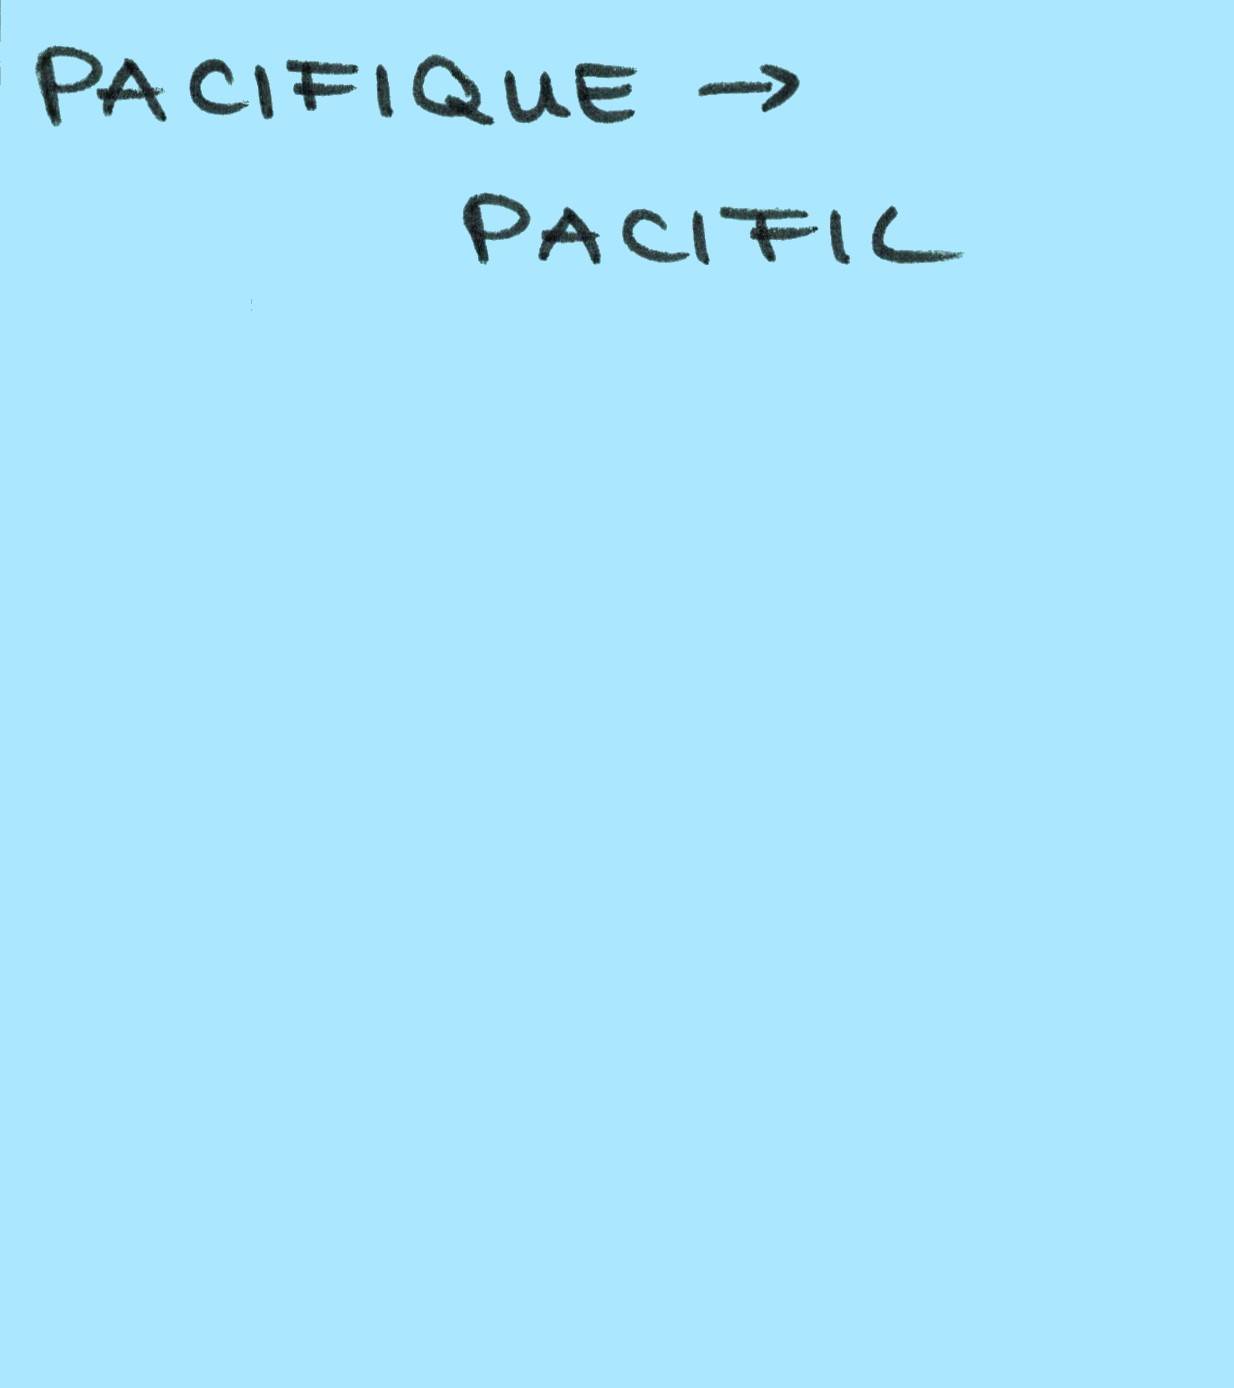 PACIFIQUE →
PACIFIC